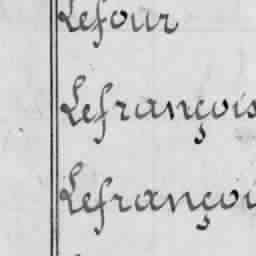 Lefour
Lefrançois
Lefrançoi